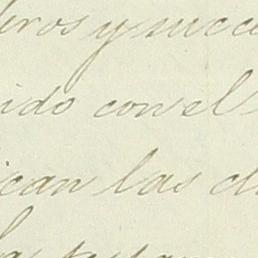 eros y suce
ido con el
ican las cl